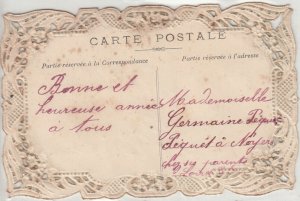 CARTE POSTALE
Partie réservée à la Correspondance
Partie réservée à l'adresse
Bonne et
heureuse année
à tous
Mademoiselle
Germaine
à Noyers
chez ses parents